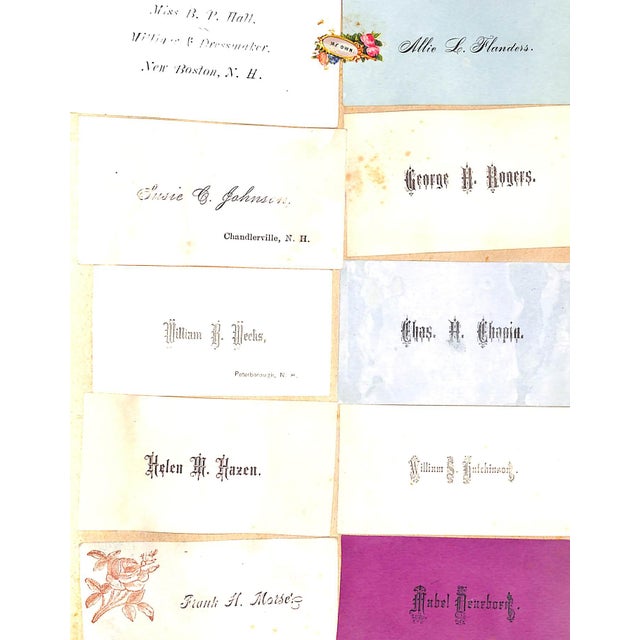 Miss B. P. Hall,
Milliner & Dressmaker,
New Boston, N. H.
MY OWN
Allie L. Flanders.
Susie C. Johnson,
Chandlerville, N. H.
George H. Rogers.
William B. Weeks,
Peterborough, N. H.
Chas. H. Chapin.
Helen M. Hazen.
William S. Hutchinson.
Frank H. Morse
Mabel Dearborn.